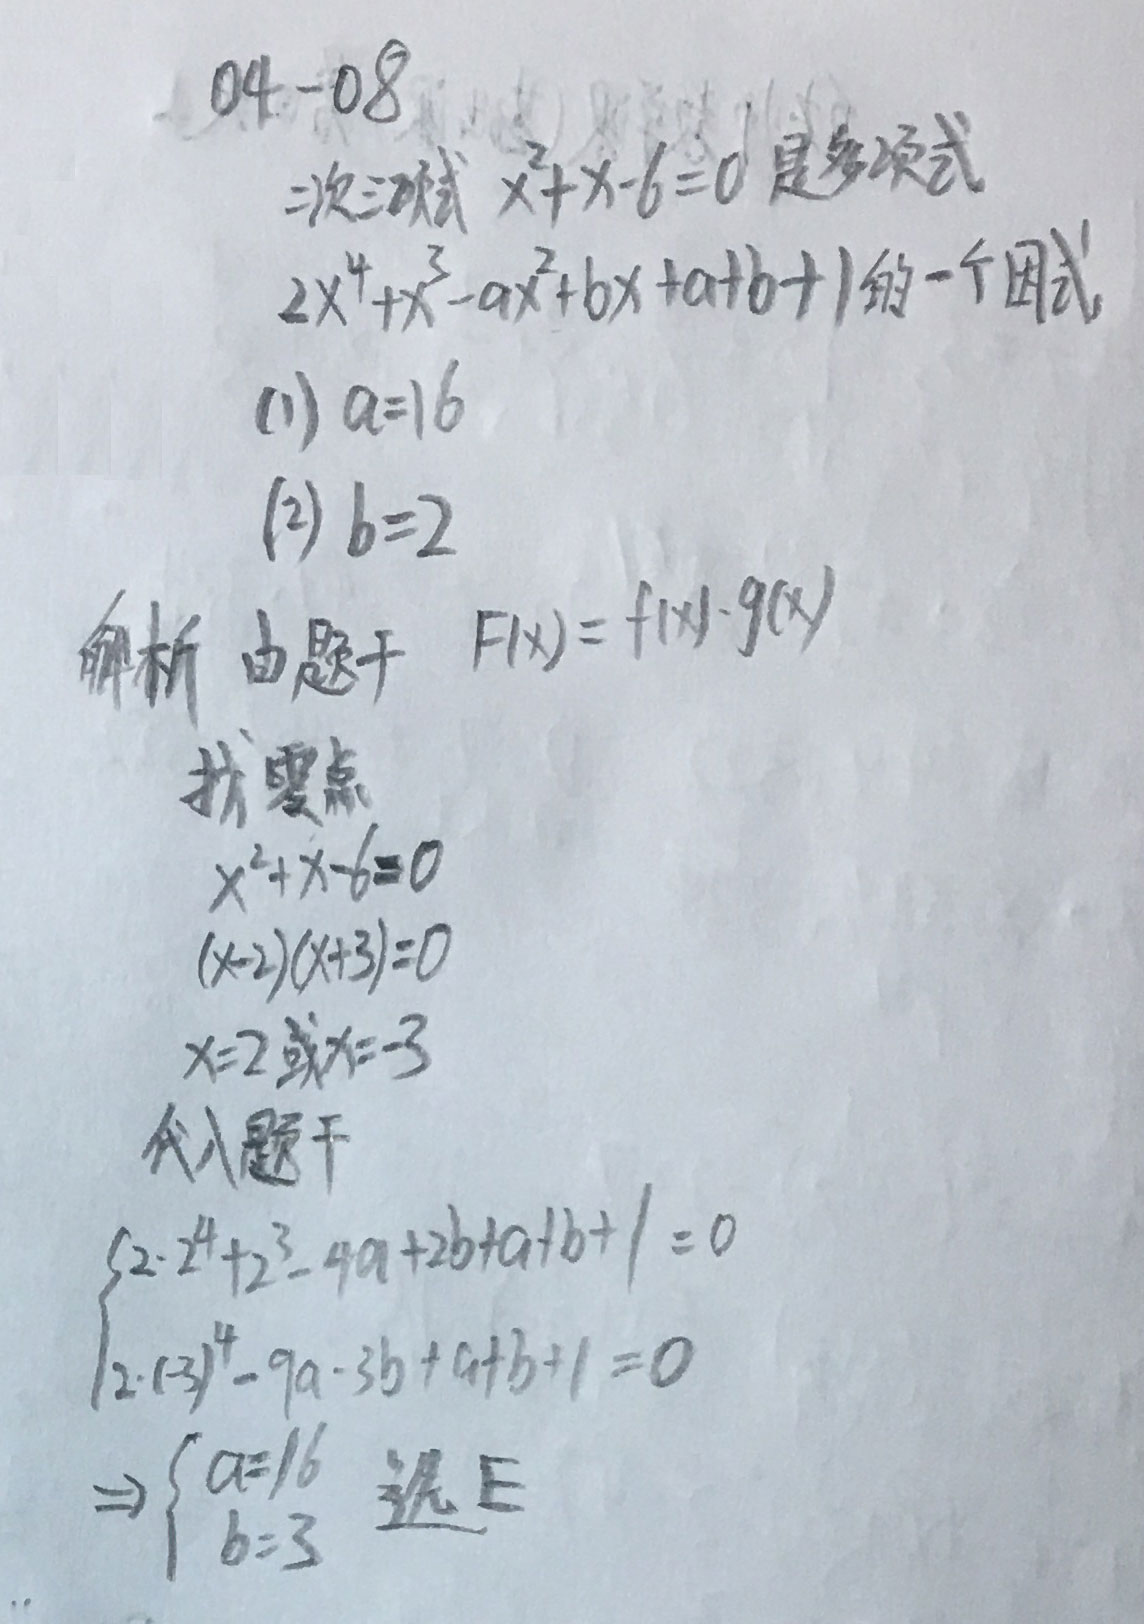 04-08
二次三项式 x²+x-6=0 是多项式
2x⁴+x³-ax²+bx+a+b+1的一个因式
(1) a=16
(2) b=2
解析 由题干 F(x)=f(x)·g(x)
找零点
x²+x-6=0
(x-2)(x+3)=0
x=2或x=-3
代入题干
{2·2⁴+2³-4a+2b+a+b+1=0
2·(-3)⁴-9a-3b+a+b+1=0
⇒{a=16 选E
b=3